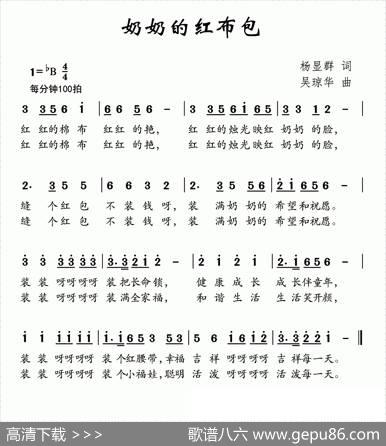 奶奶的红布包
1=♭B 4/4
每分钟100拍
杨显群 词
吴琼华 曲
3 3 5 5 6 i | 6 6 5 6 - | 3 3 5 6 i 6 5 3 5 6 | i - - - |
红 红的棉布 红红的艳, 红 红的烛光映红 奶奶的脸,
红 红的棉布 红红的艳, 红 红的烛光映红 奶奶的脸,
缝 个红包 不装钱呀, 装 满奶奶的 希望和祝愿。
缝 个红包 不装钱呀, 装 满奶奶的 希望和祝愿。
装 装 呀呀呀呀 装把长命锁, 健康成长 成长伴童年,
装 装 呀呀呀呀 装满全家福, 和谐生活 生活笑开颜,
装 装 呀呀呀呀 装个红腰带,幸福吉祥 呀呀呀呀 吉祥每一天。
装 装 呀呀呀呀 装个小福娃,聪明活泼 呀呀呀呀 活泼每一天。
高清下载 >>> 歌谱八六 www.gepu86.com